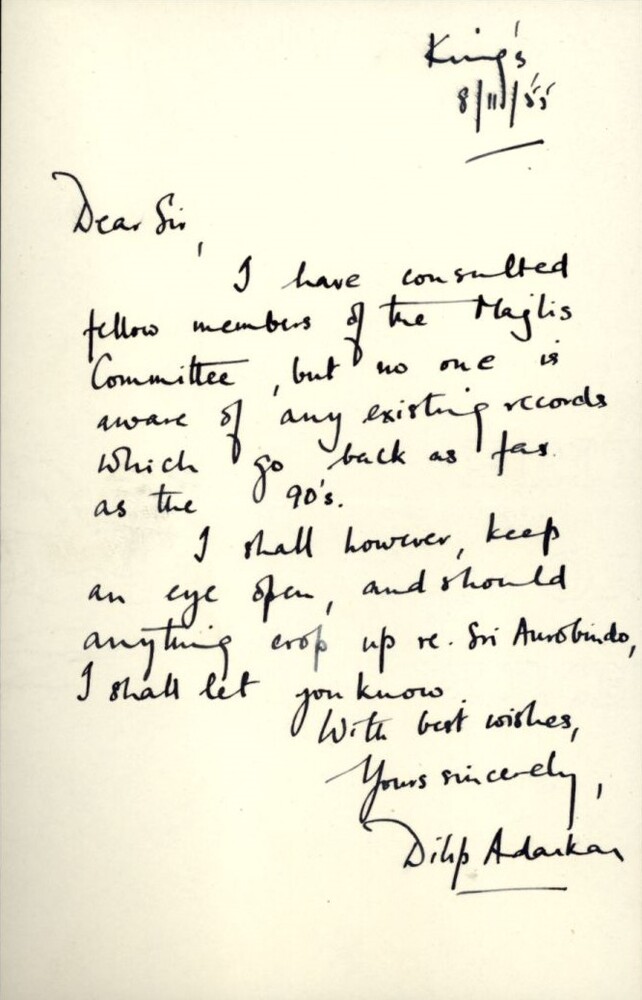 King's
8/11/55
Dear Sir,
I have consulted
fellow members of the Majlis
Committee, but no one is
aware of any existing records
which go back as far
as the 90's.
I shall however, keep
an eye open, and should
anything crop up re. Sri Aurobindo,
I shall let you know.
With best wishes,
Yours sincerely,
Dilip Adarkar